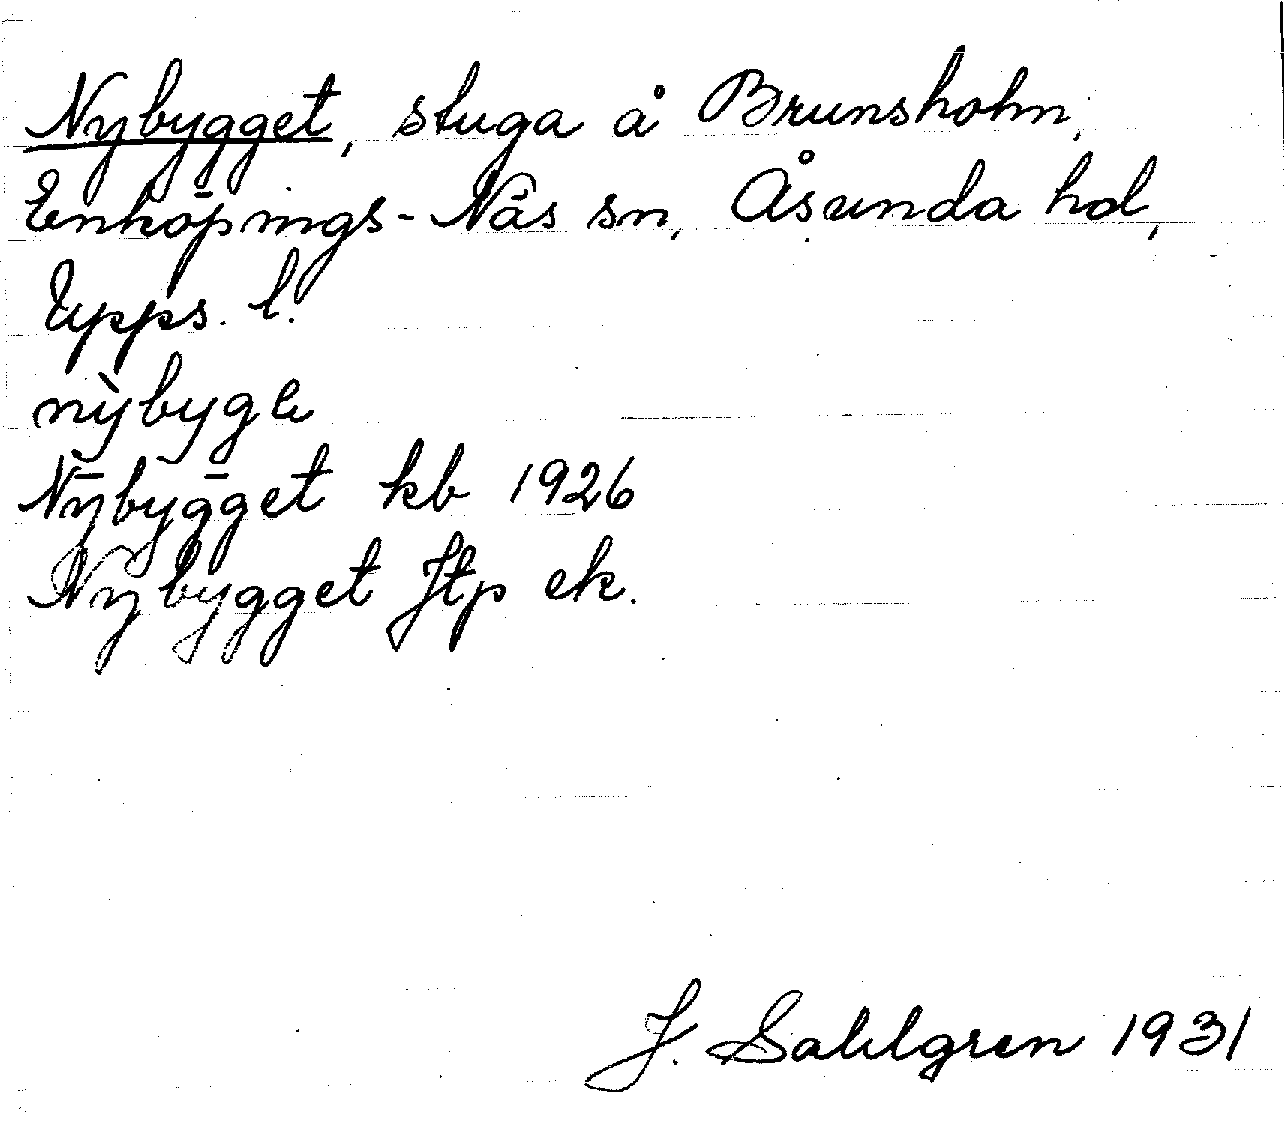 Nybygget, stuga å Brunsholm,
Enköpings-Näs sn, Åsunda hd,
Upps. l.
nỳbygə
Nybygget kb 1926
Nybygget Jtp ek.
J. Sahlgren 1931